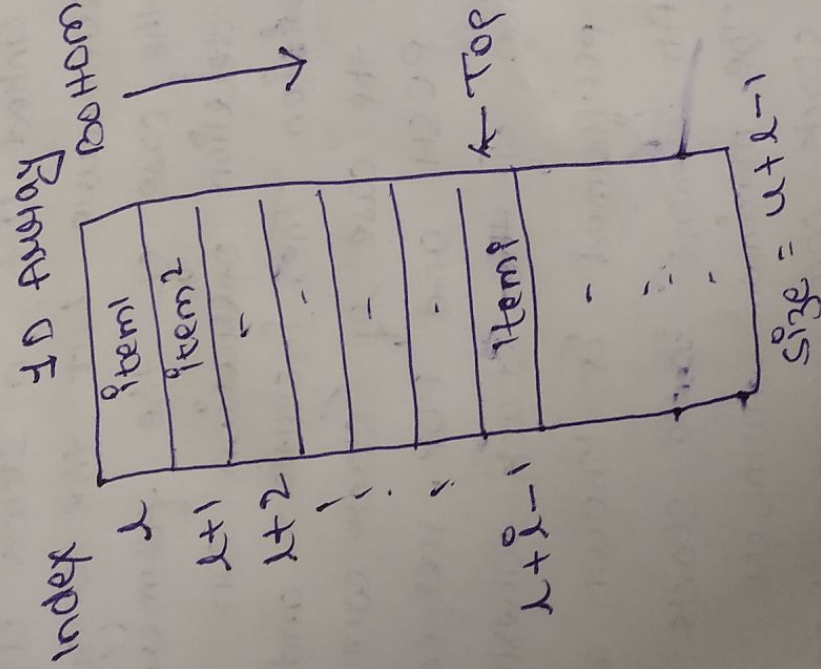 Index 1D Array Bottom
l item1
l+1 item2
l+2 -
-
-
-
l+i-1 itemi ← Top
Size = u+l-1